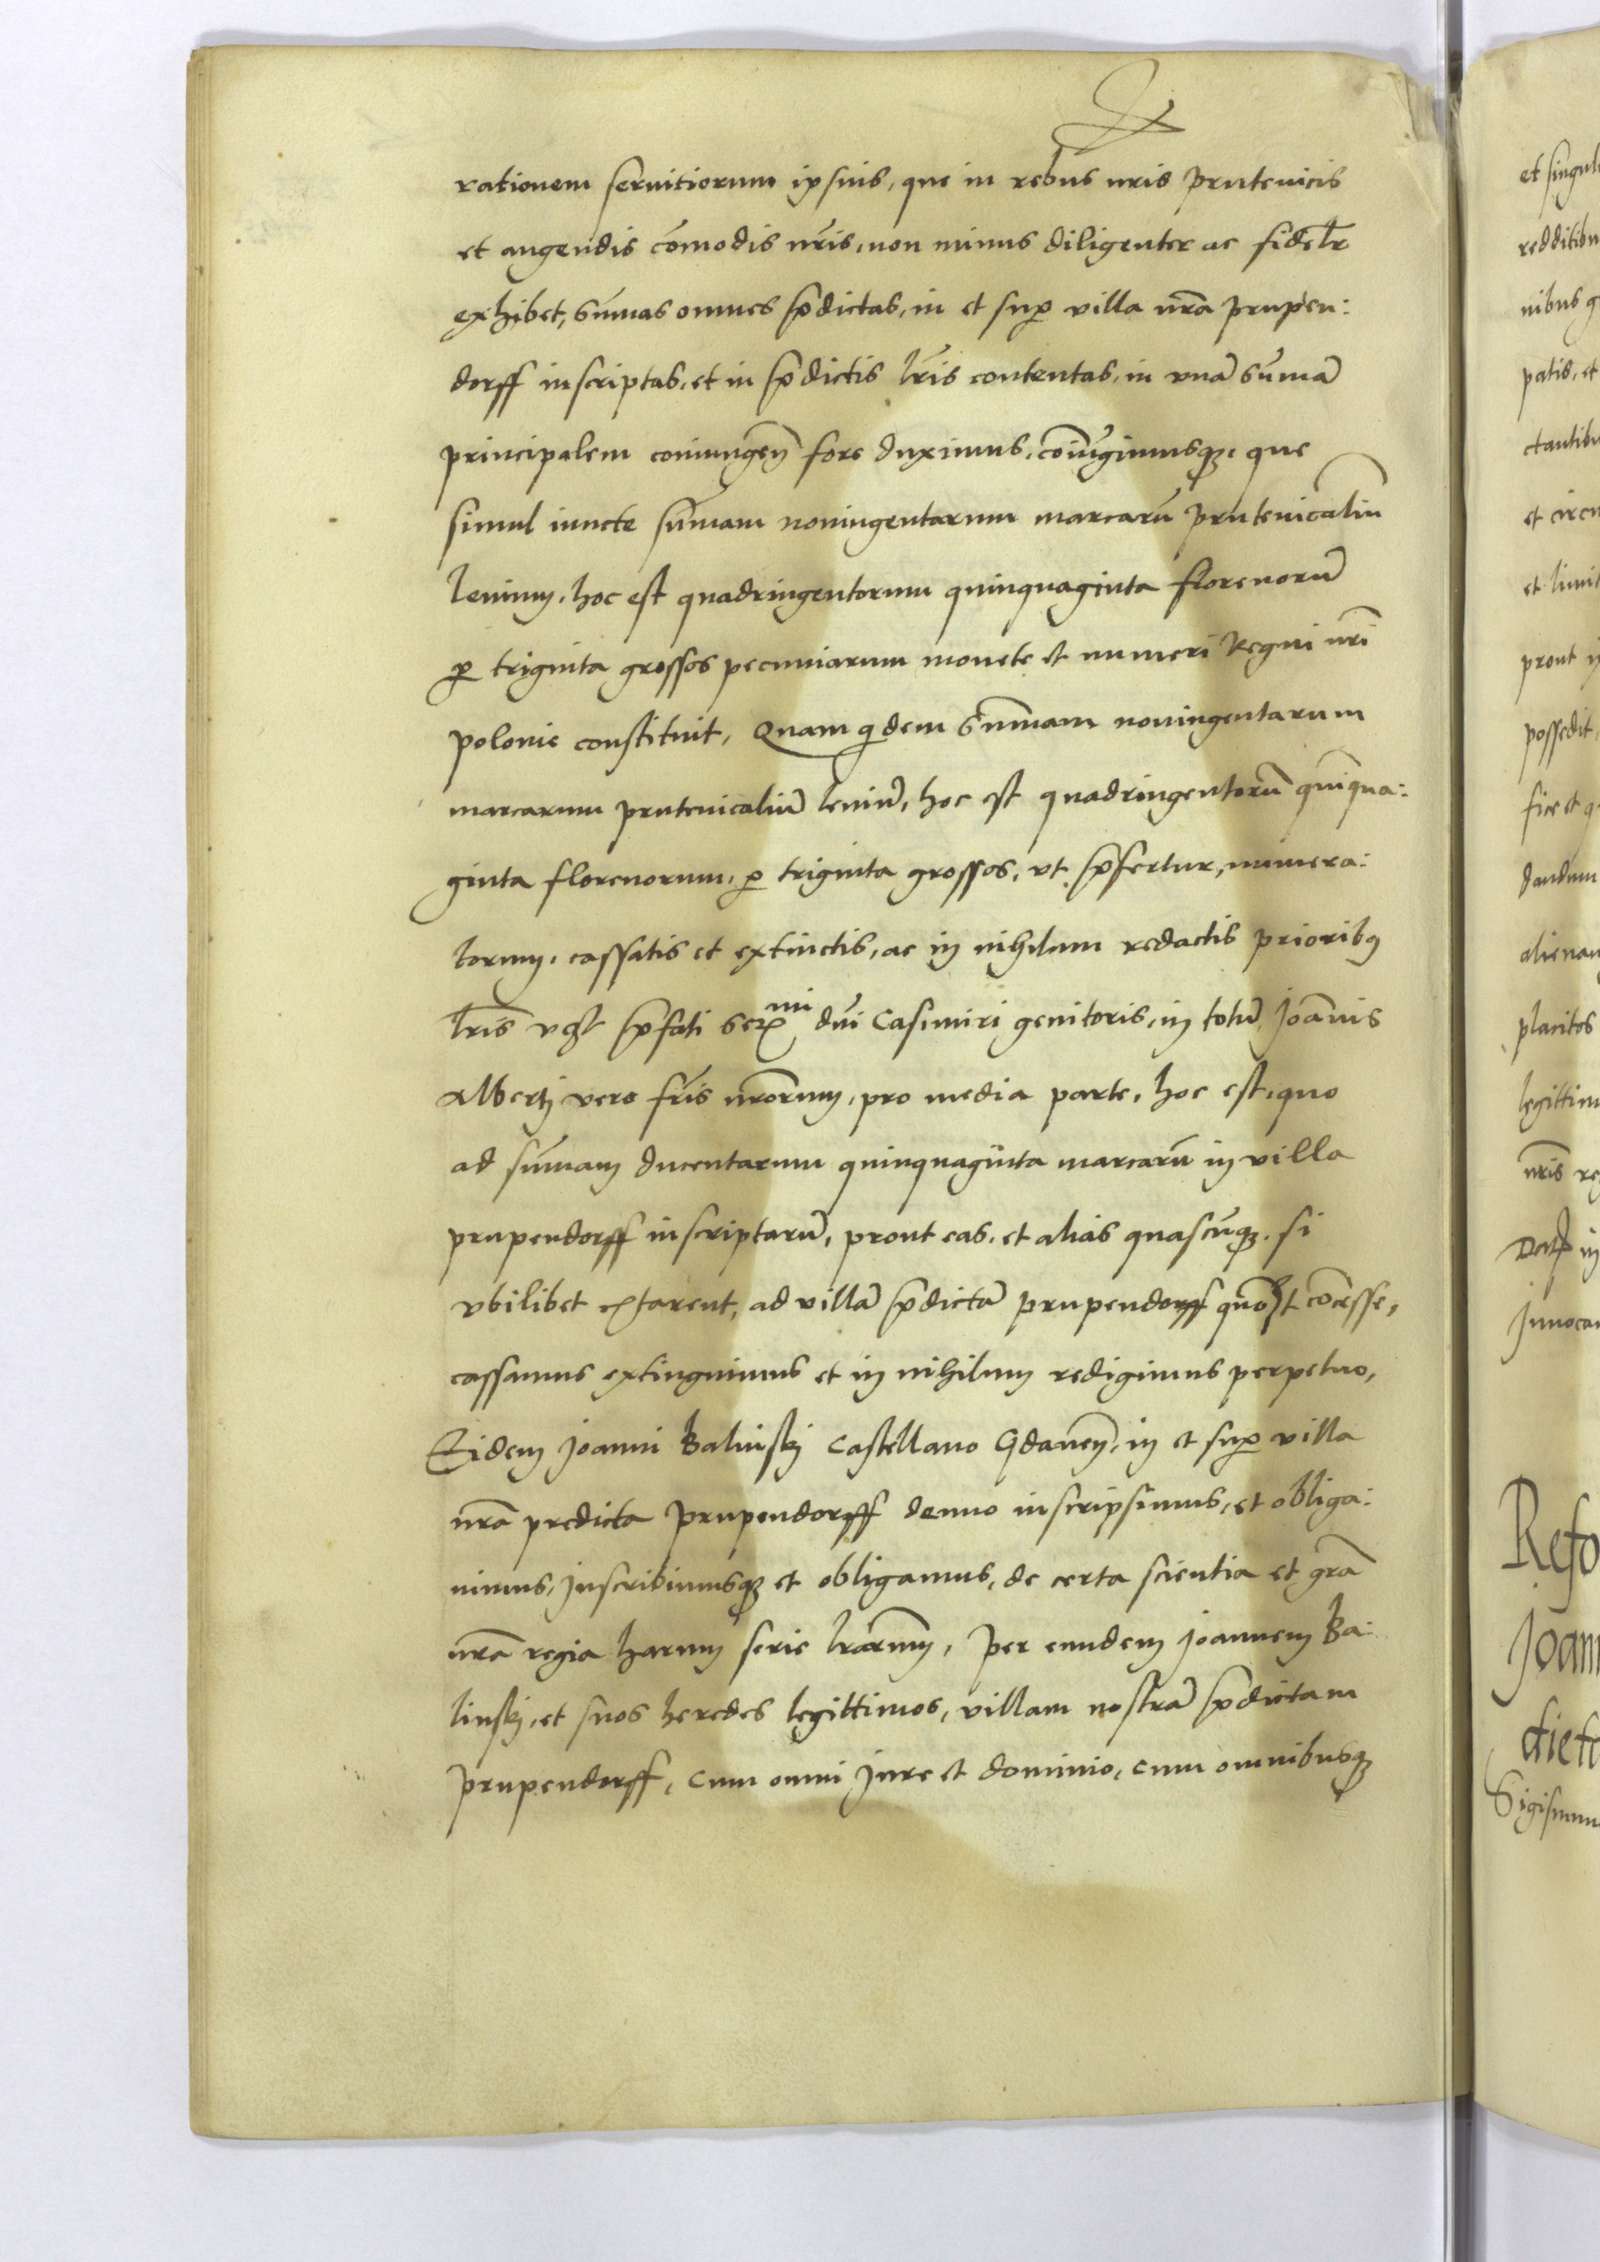 rationem seruitiorum ipsius, que in rebus nris prutenicis
et augendis cōmodis nr̄is, non minus diligenter ac fidelr
exhibet, sūmas omnes p̄dictas, in et sup villa nr̄a prupen:
dorff inscriptas, et in p̄dictis lr̄is contentas, in vnā sūmā
principalem coniungen̄ fore duximus, coniūgimusq3, que
simul iuncte sūmam noningentarum marcarū prutenicaliū
leuium, hoc est quadringentorum quinquaginta florenorū
p triginta grossos pecuniarum monete et numeri Regni nr̄i
polonie constituit, Quam qdem sūmmam noningentarum
marcarum prutenicaliū leuiū, hoc est quadringentorū quīqua:
ginta florenorum, p triginta grossos, vt p̄fertur, numera:
torum, cassatis et extinctis, ac in nihilum redactis prioribq
lr̄is p̄fati ser mi dnī Casimiri genitoris, in totū, Joānnis
Alberti vero fr̄is nr̄orum, pro media parte, hoc est, quo
ad sūmam ducentarum quinquaginta marcarū in villa
prupendorff inscriptarū, prout eas, et alias quascūq3, si
vbilibet extarent, ad villā p̄dictā prupendorff concesse,
cassamus extinguimus et in nihilum redigimus perpetuo,
Eidem Joanni Balinski Castellano Gdanen̄, in et sup villa
nr̄a predicta prupendorff denuo inscripsimus, et obliga:
uimus, Inscribimusq3 et obligamus, de certa scientia et grā
nr̄a regia harum serie lr̄arum, per eundem Joannem Ba:
linski, et suos heredes legittimos, villam nostrā p̄dictam
prupendorff, cum omni Jure et dominio, cum omnibusq3
et singul
redditibu
nibus q
patis, et
ctantibu
et circu
et limit
prout
possedit,
fice et q
dandum
alienan
placitos
legittim
nr̄is re
Dat in
Juuocau
Refo
Joann
diet
Sigismun